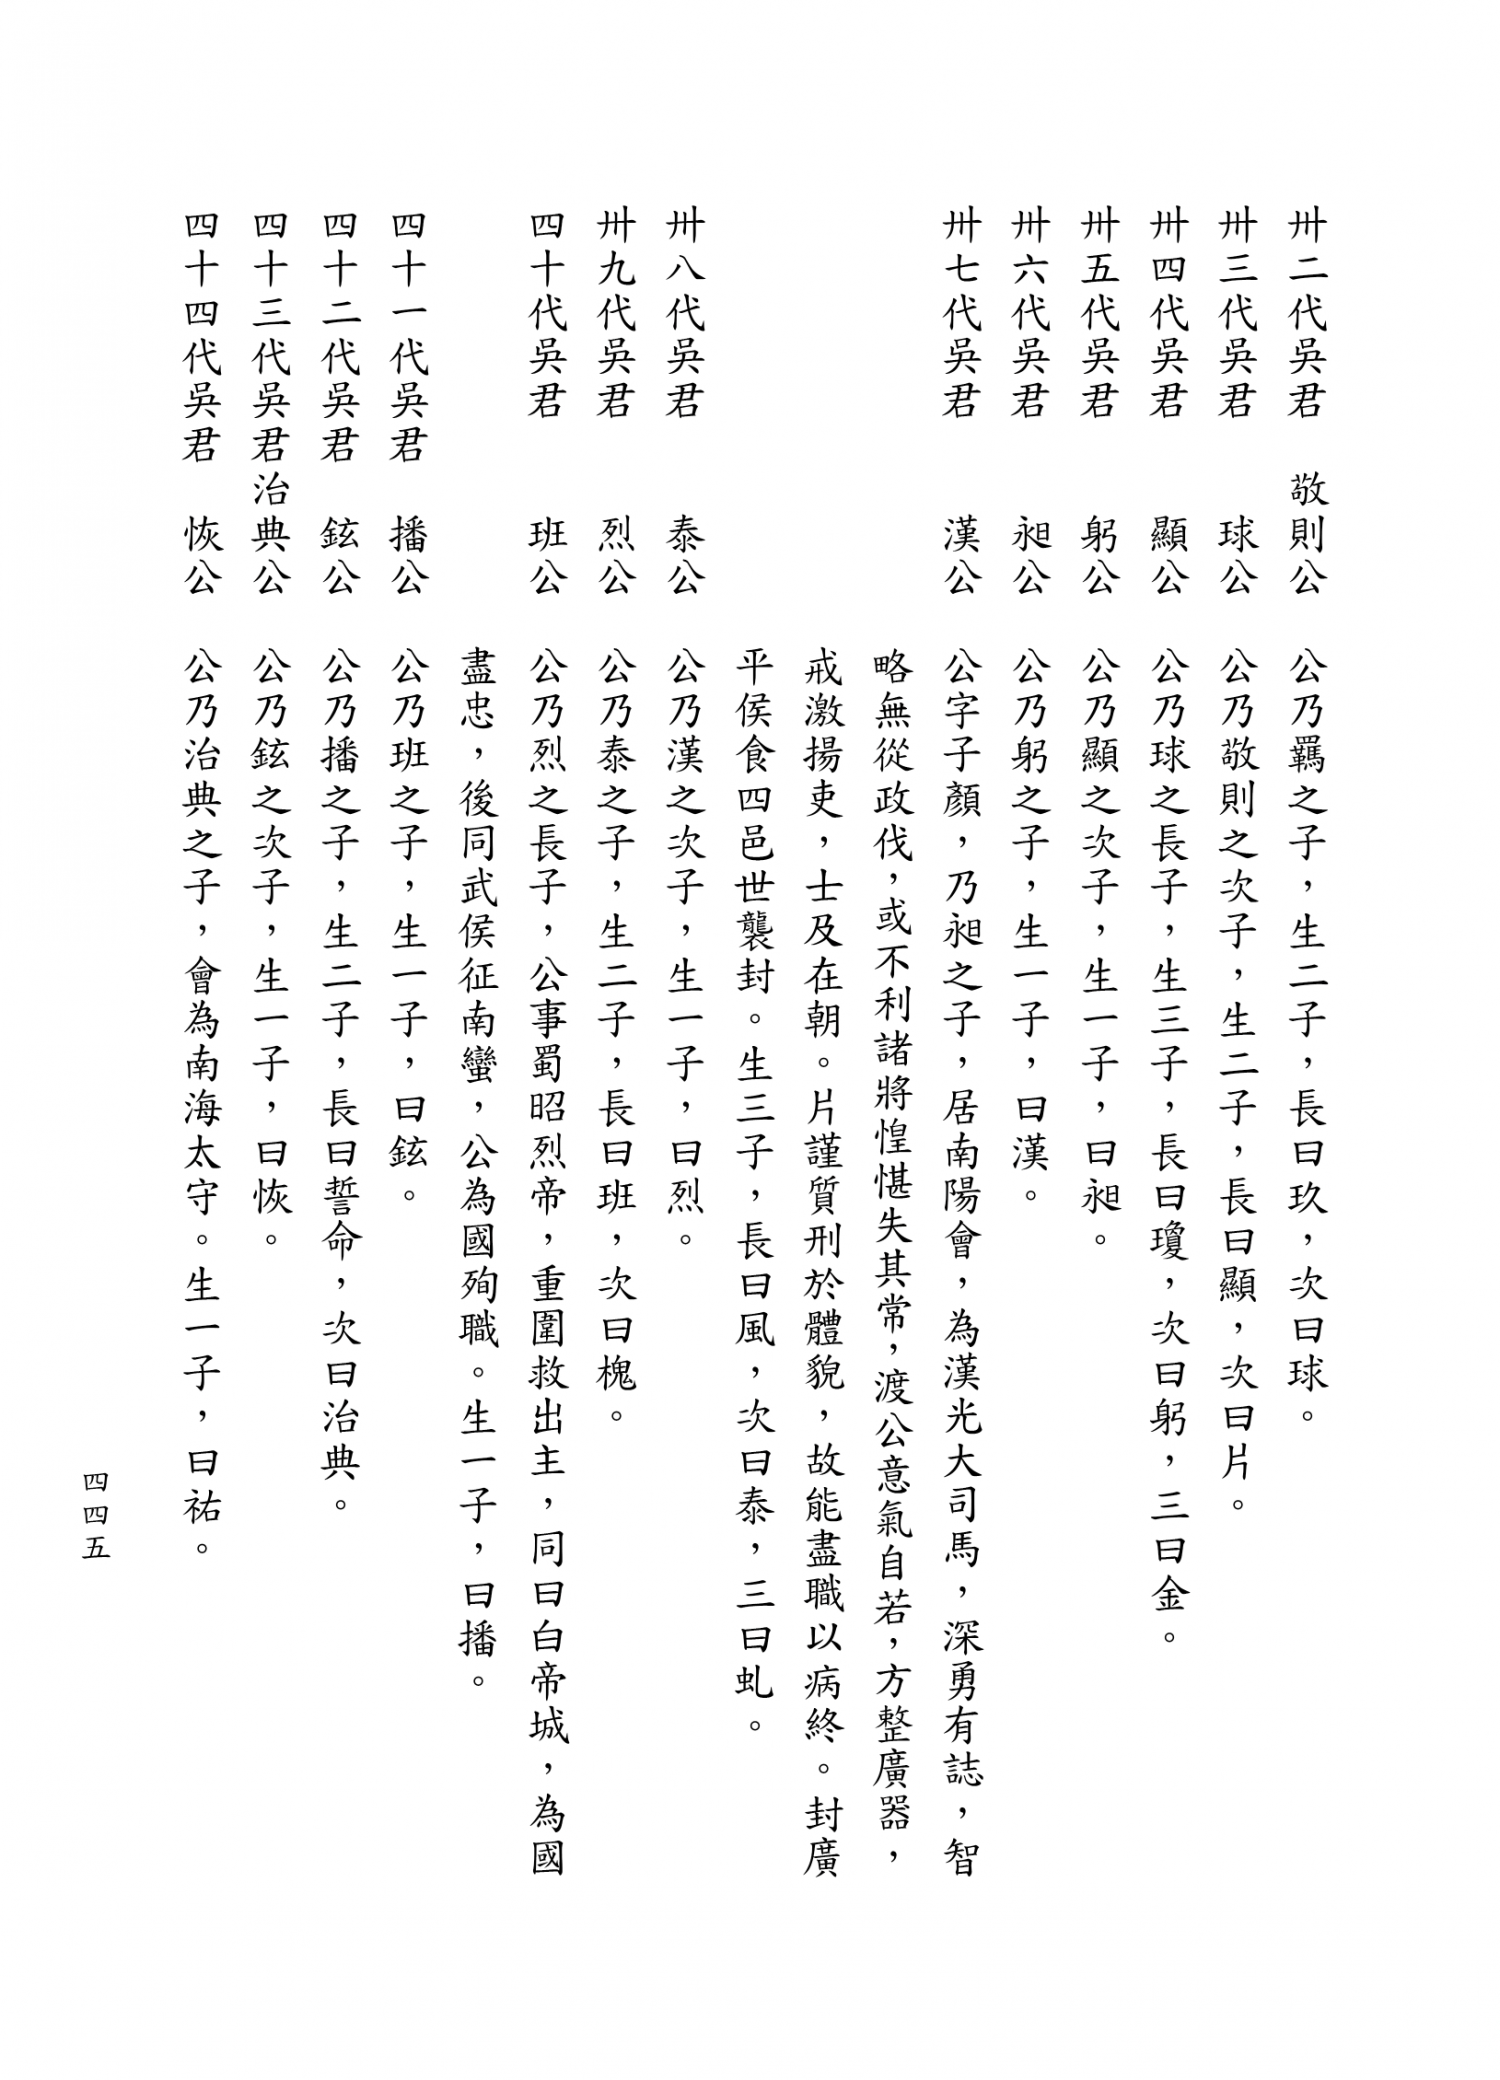 卅二代吳君　敬則公　公乃羈之子，生二子，長曰玖，次曰球。
卅三代吳君　球公　公乃敬則之次子，生二子，長曰顯，次曰片。
卅四代吳君　顯公　公乃球之長子，生三子，長曰瓊，次曰躬，三曰金。
卅五代吳君　躬公　公乃顯之次子，生一子，曰昶。
卅六代吳君　昶公　公乃躬之子，生一子，曰漢。
卅七代吳君　漢公　公字子顏，乃昶之子，居南陽會，為漢光大司馬，深勇有誌，智
略無從政伐，或不利諸將惶惎失其常，渡公意氣自若，方整廣器，
戒激揚吏，士及在朝。片謹質刑於體貌，故能盡職以病終。封廣
平侯食四邑世襲封。生三子，長曰風，次曰泰，三曰虬。
卅八代吳君　泰公　公乃漢之次子，生一子，曰烈。
卅九代吳君　烈公　公乃泰之子，生二子，長曰班，次曰槐。
四十代吳君　班公　公乃烈之長子，公事蜀昭烈帝，重圍救出主，同曰白帝城，為國
盡忠，後同武侯征南蠻，公為國殉職。生一子，曰播。
四十一代吳君　播公　公乃班之子，生一子，曰鉉。
四十二代吳君　鉉公　公乃播之子，生二子，長曰誓命，次曰治典。
四十三代吳君治典公　公乃鉉之次子，生一子，曰恢。
四十四代吳君　恢公　公乃治典之子，會為南海太守。生一子，曰祐。
四四五